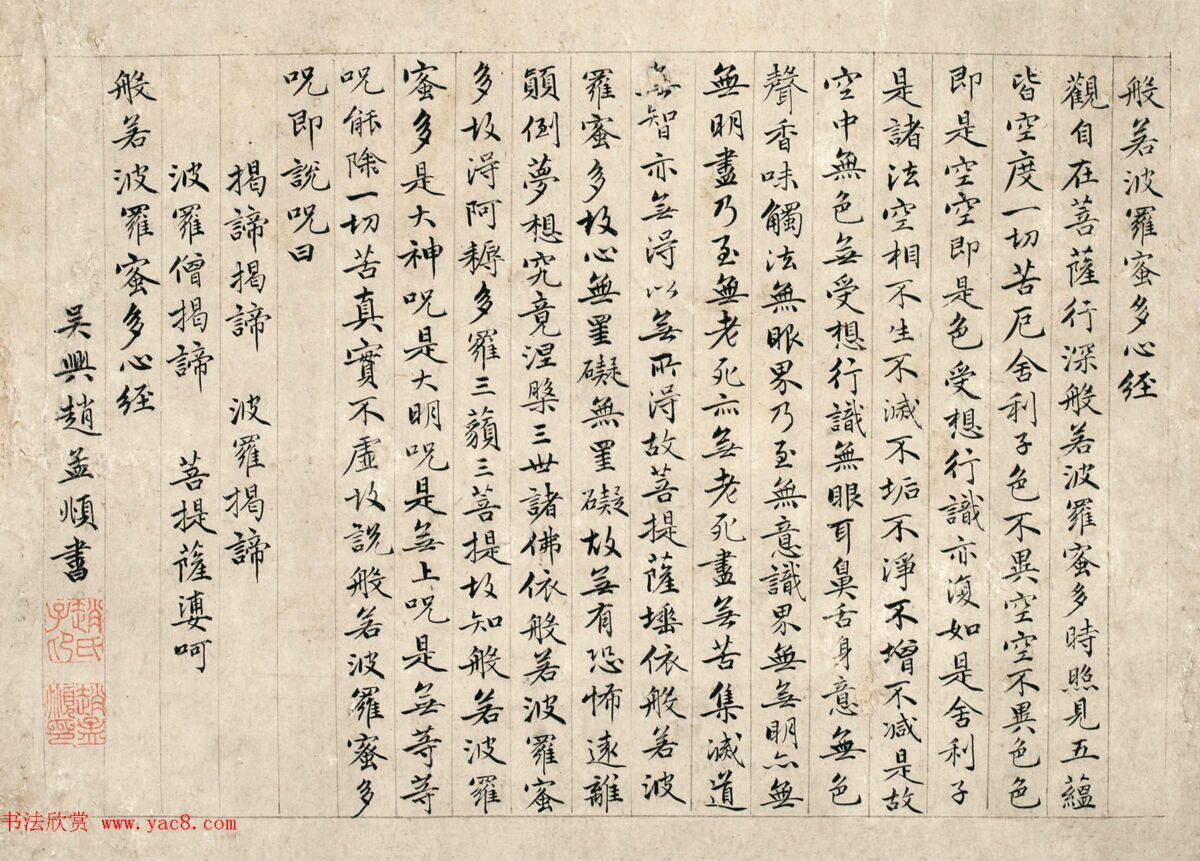 般若波羅蜜多心經
觀自在菩薩行深般若波羅蜜多時照見五蘊
皆空度一切苦厄舍利子色不異空空不異色色
即是空空即是色受想行識亦復如是舍利子
是諸法空相不生不滅不垢不淨不增不減是故
空中無色無受想行識無眼耳鼻舌身意無色
聲香味觸法無眼界乃至無意識界無無明亦無
無明盡乃至無老死亦無老死盡無苦集滅道
無智亦無得以無所得故菩提薩埵依般若波
羅蜜多故心無罣礙無罣礙故無有恐怖遠離
顛倒夢想究竟涅槃三世諸佛依般若波羅蜜
多故得阿耨多羅三藐三菩提故知般若波羅
蜜多是大神呪是大明呪是無上呪是無等等
呪能除一切苦真實不虛故說般若波羅蜜多
呪即說呪曰
揭諦揭諦 波羅揭諦
波羅僧揭諦 菩提薩婆呵
般若波羅蜜多心經
吳興趙孟頫書
趙氏子昂
趙孟頫印
书法欣赏 www.yac8.com